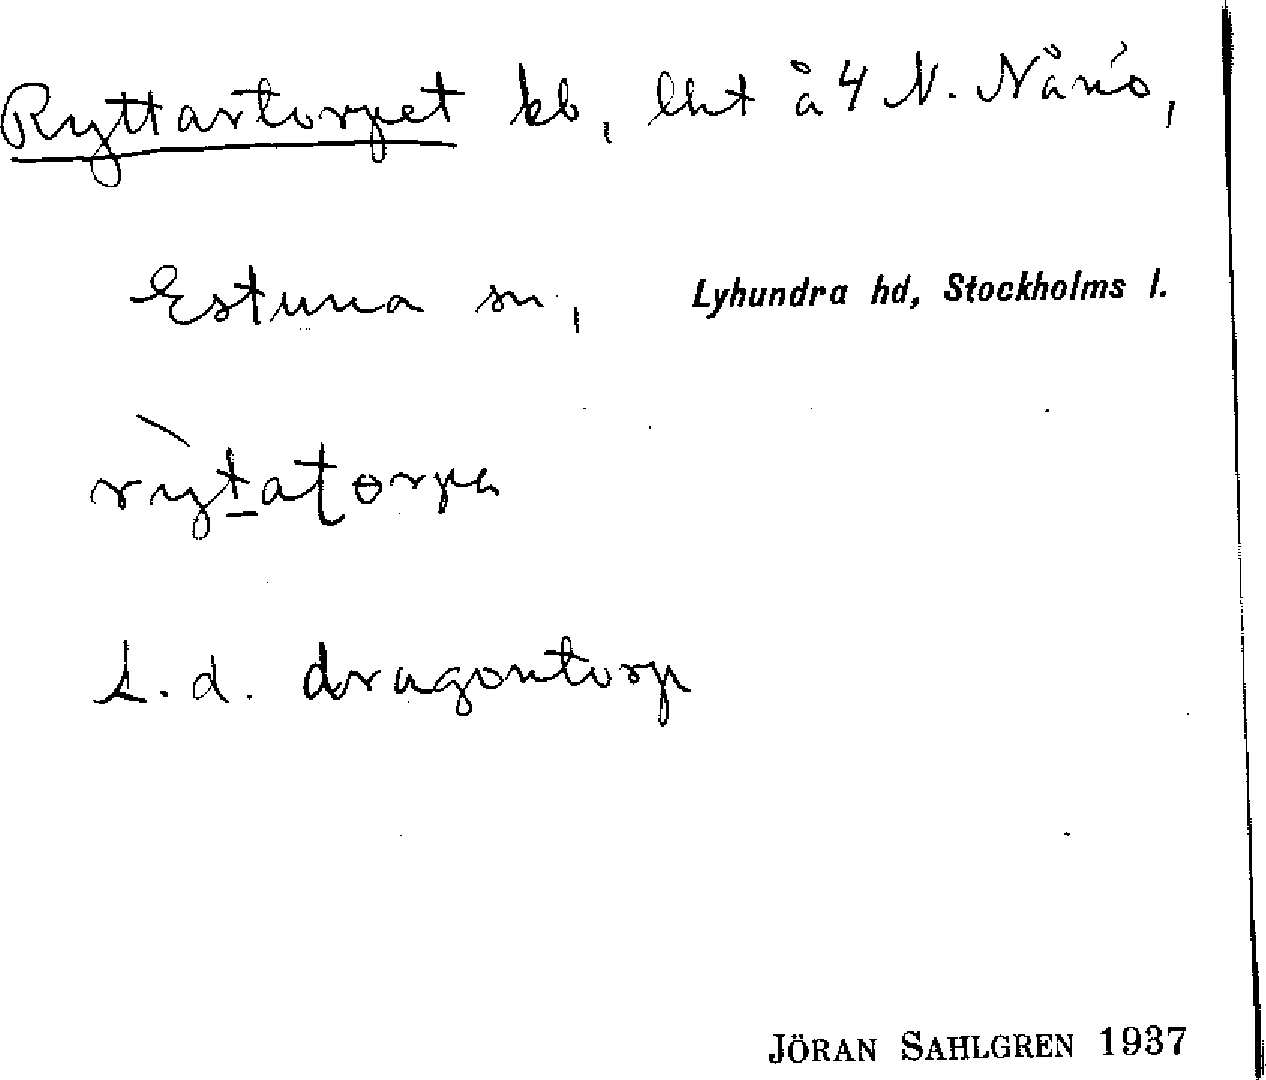 Ryttartorpet kb, lht å 4 N. Nånö,
Estuna sn, Lyhundra hd, Stockholms l.
rỳtatorpa
L. d. dragontorp
JÖRAN SAHLGREN 1937